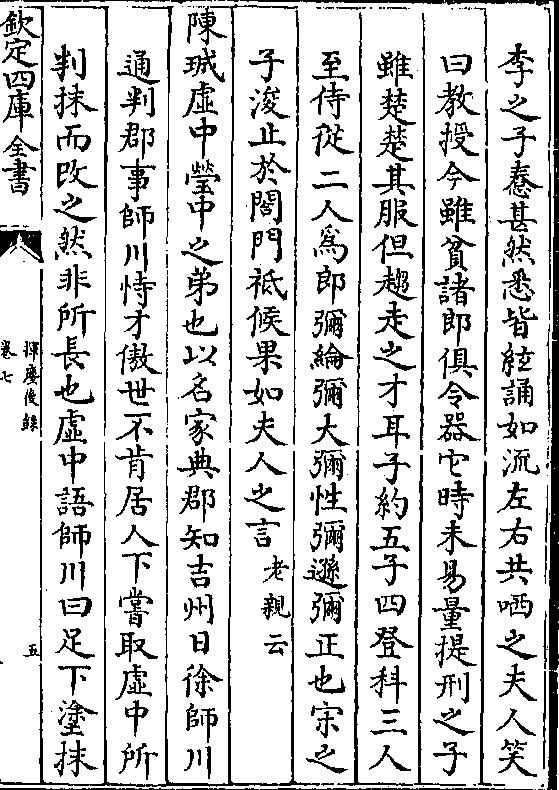 李之子憃甚然悉皆絃誦如流左右共哂之夫人笑
曰教授今雖貧諸郎俱令器它時未易量提刑之子
雖楚楚其服但趨走之才耳子約五子四登科三人
至侍從二人為郎彌綸彌大彌性彌遜彌正也宋之
子浚止於閤門祗候果如夫人之言老親云
陳珹虛中瑩中之弟也以名家典郡知吉州日徐師川
通判郡事師川恃才傲世不肯居人下嘗取虛中所
判抹而改之然非所長也虛中語師川曰足下塗抹
欽定四庫全書
揮麈後錄
卷七
五